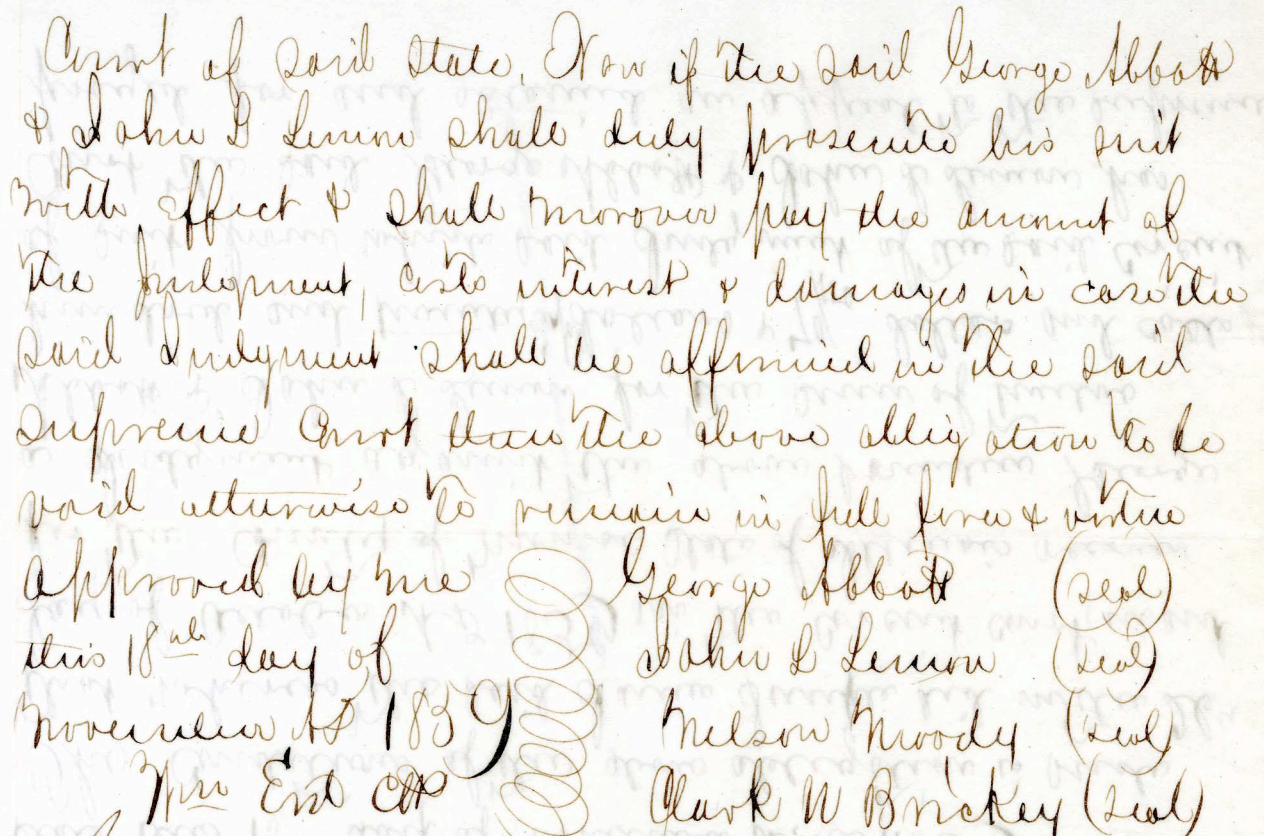 Court of said State, Now if the said George Abbott
& John L Lemon shall duly prosecute his suit
with effect & shall morover pay the amount of
the Judgment, costs interest & damages in case the
said Judgment shall be affirmed in the said
supreme Court then the above obligation to be
void otherwise to remain in full force & virtue
approved by me
this 18th day of
November AD 1859
Wm End Clk
George Abbott (seal)
John L Lemon (seal)
Nelson Moody (seal)
Clark W Brickey (seal)